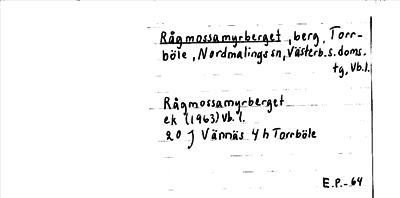 Rågmossamyrberget, berg, Torr-
böle, Nordmalings sn, Västerb. s. doms.
tg, Vb. l.
Rågmossamyrberget
ek (1963) Vb. l.
20 J Vännäs 4 h Torrböle
E.P.-64